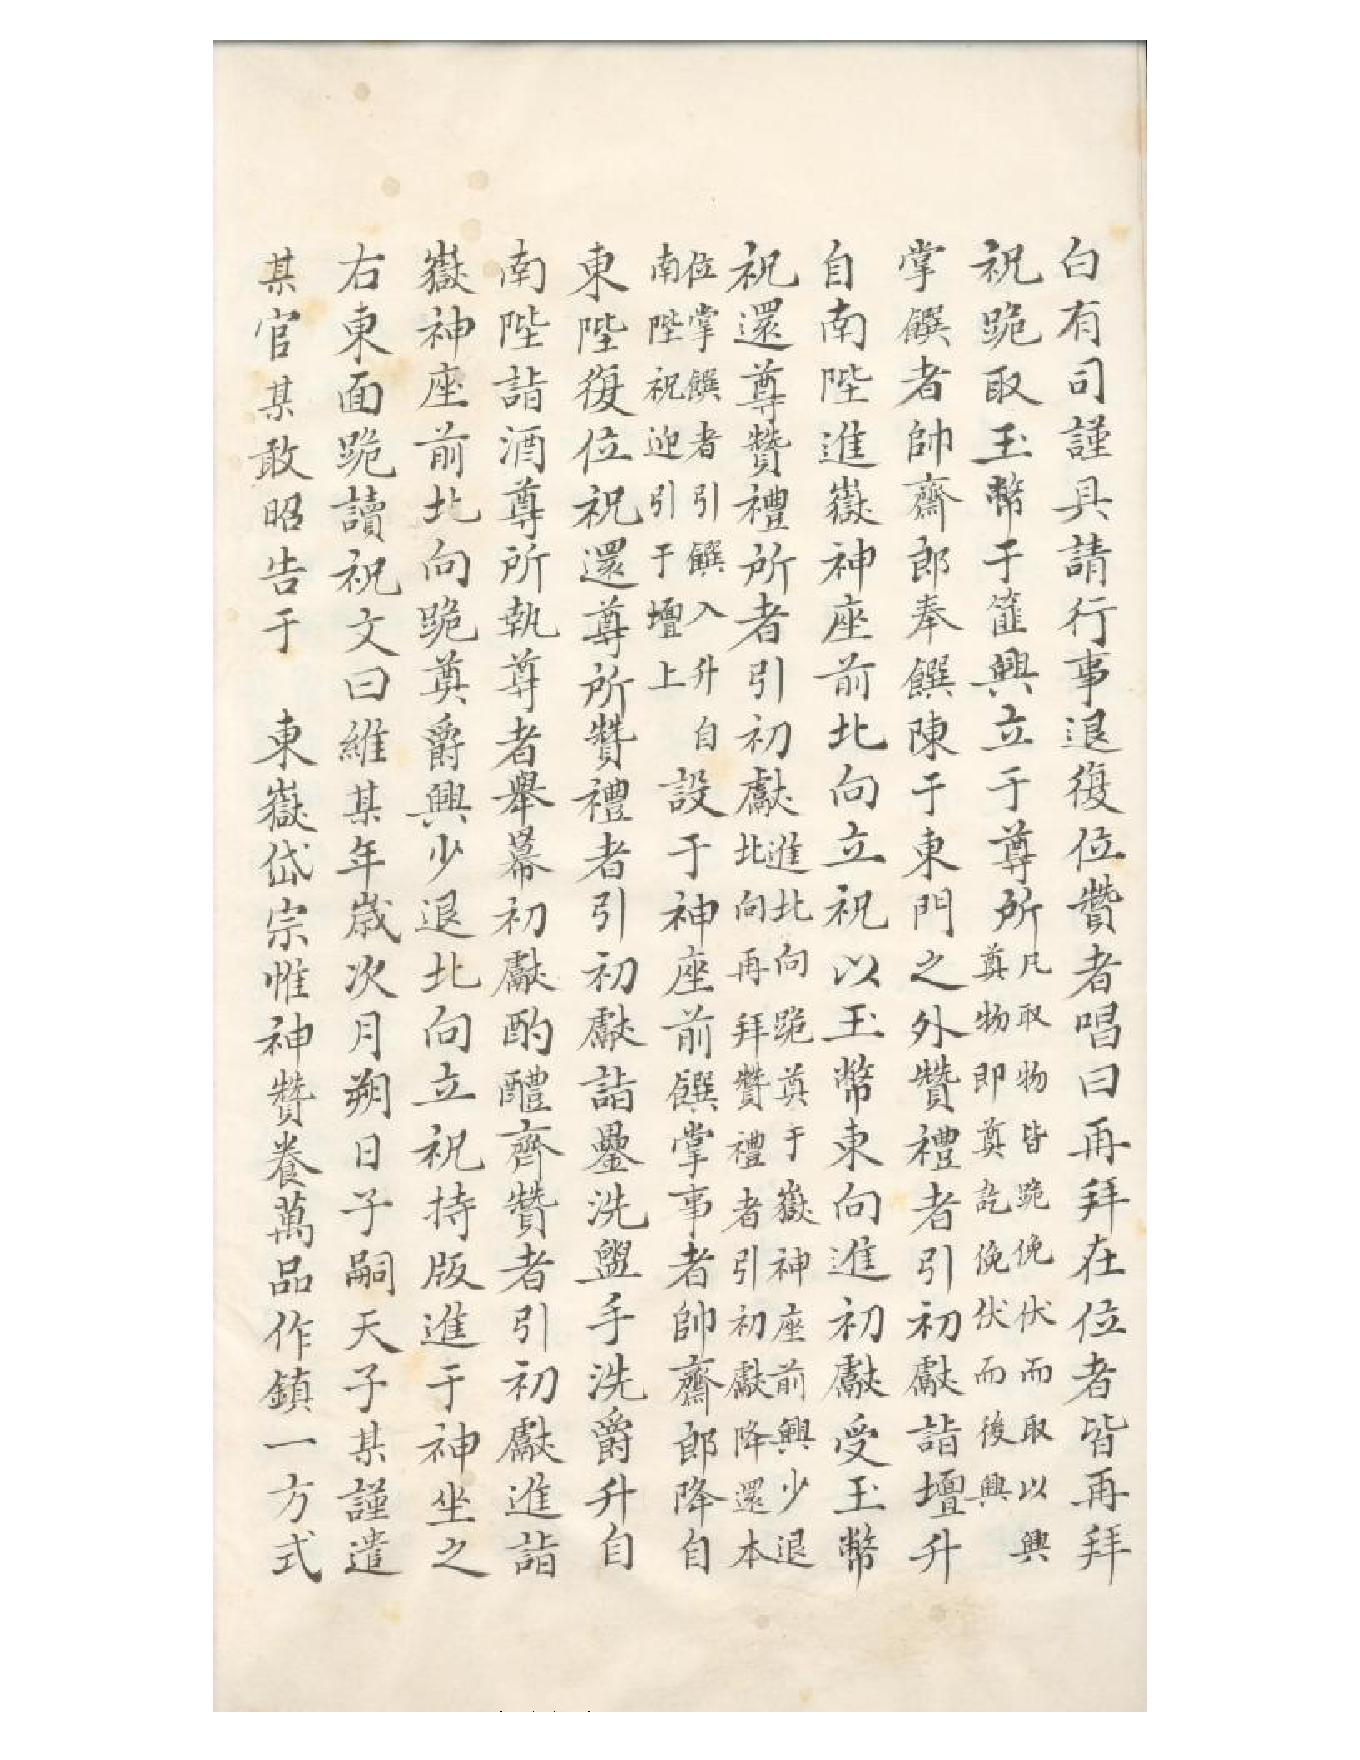 白有司謹具請行事退復位贊者唱曰再拜在位者皆再拜
祝跪取玉幣于篚興立于尊所凡取物皆跪俛伏而取以興奠物即奠訖俛伏而後興
掌饌者帥齋郎奉饌陳于東門之外贊禮者引初獻詣壇升
自南陛進嶽神座前北向立祝以玉幣東向進初獻受玉幣
祝還尊贊禮所者引初獻進北向跪奠于嶽神座前興少退北向再拜贊禮者引初獻降還本
位掌饌者引饌入升自南陛祝迎引于壇上設于神座前饌掌事者帥齋郎降自
東陛復位祝還尊所贊禮者引初獻詣罍洗盥手洗爵升自
南陛詣酒尊所執尊者舉冪初獻酌醴齊贊者引初獻進詣
嶽神座前北向跪奠爵興少退北向立祝持版進于神坐之
右東面跪讀祝文曰維某年歲次月朔日子嗣天子某謹遣
某官某敢昭告于　東嶽岱宗惟神贊養萬品作鎮一方式